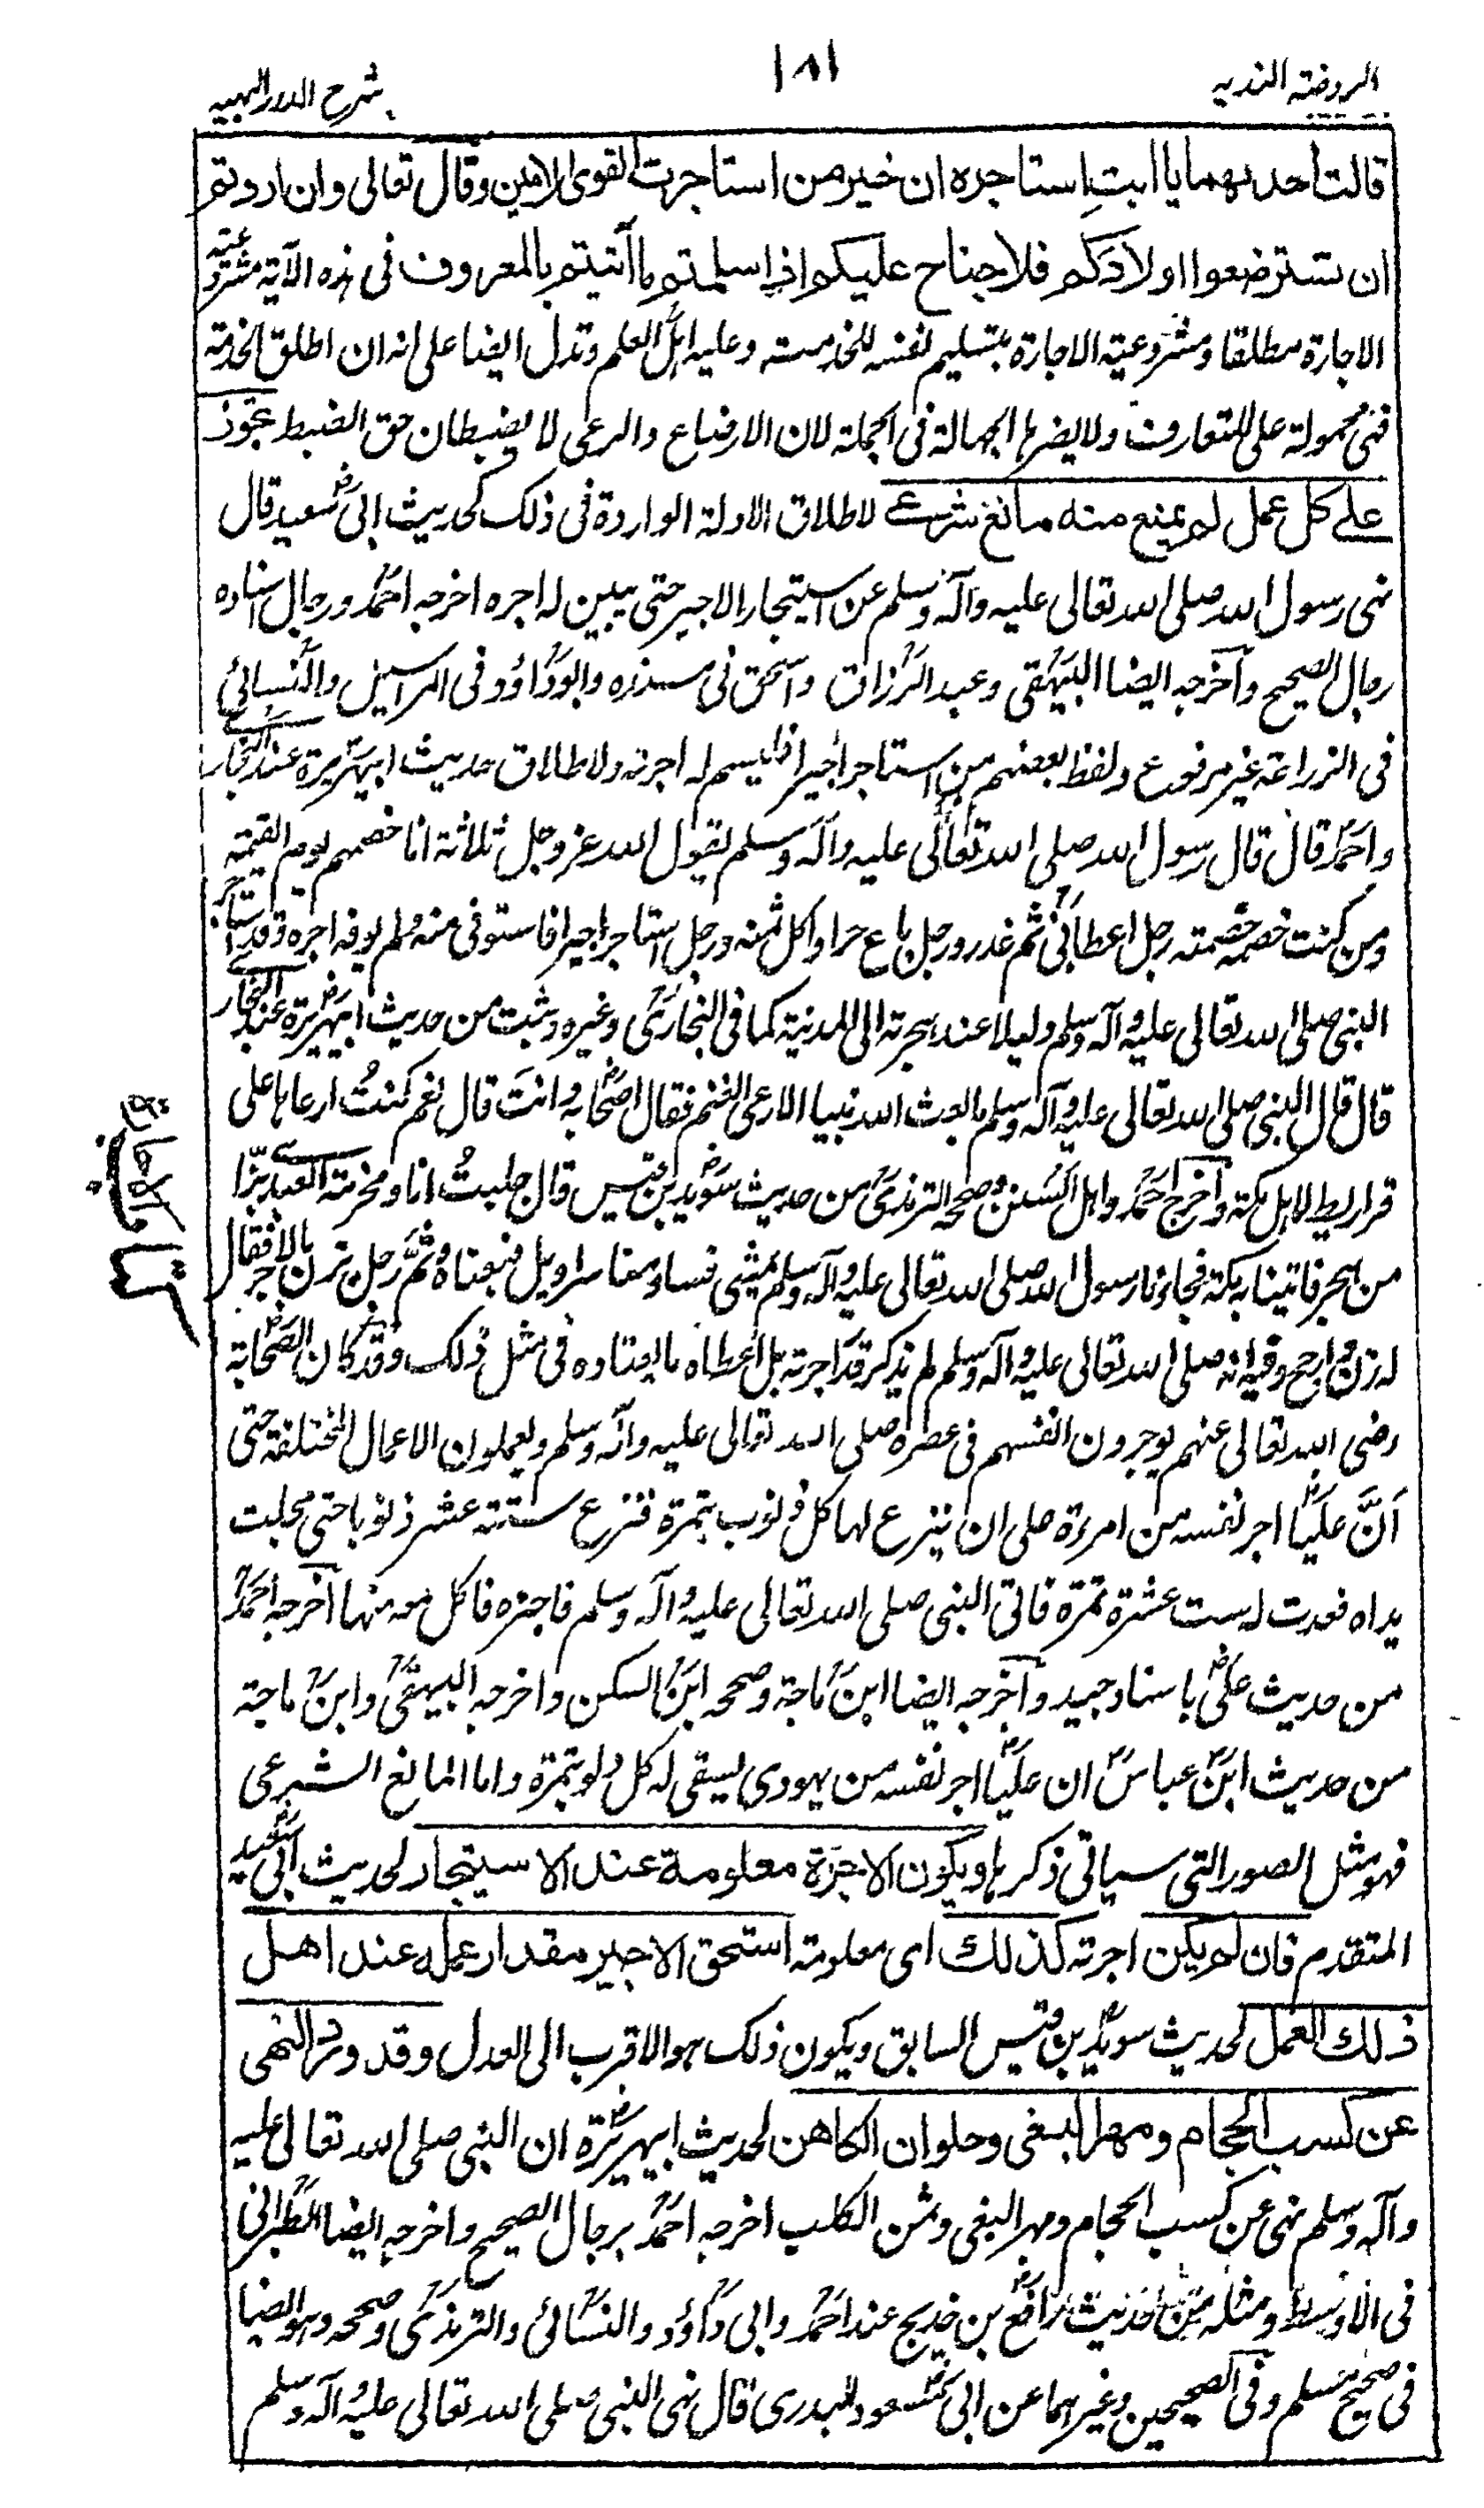 الروضة الندية
١٨١
شرح الدرر البهية
قالت احدىهما يا ابتِ استاجره ان خير من استاجرت القوى الامين وقال تعالى وان اردتم
ان تسترضعوا اولادكم فلا جناح عليكم اذا سلمتم ما آتيتم بالمعروف فى هذه الآية مشروعية
الاجارة مطلقا ومشروعية الاجارة بتسليم نفسه للخدمة وعليه اهل العلم وتدل ايضا على انه ان اطلق الخدمة
فهى محمولة على المتعارف ولا يضرها الجهالة فى الجملة لان الارضاع والرعى لا يضبطان حق الضبط تجوز
على كل عمل لم يمنع منه مانع شرعى لاطلاق الادلة الواردة فى ذلك كحديث ابىؓ سعيد قال
نهى رسول الله صلى الله تعالى عليه وآله وسلم عن استيجار الاجير حتى يبين له اجره اخرجه احمدؒ ورجال اسناده
رجال الصحيح وآخرجه ايضا البيهقى وعبد الرزاق واسحق فى مسنده وابو داؤد فى المراسيل والنسائى
فى الزراعة غير مرفوع ولفظ بعضهم من استاجر اجيرا فليسم له اجرته ولاطلاق حديث ابيهريرة عند البخارى
واحمد قال قال رسول الله صلى الله تعالى عليه وآله وسلم يقول الله عز وجل ثلاثة انا خصمهم يوم القيمة
ومن كنت خصمه خصمته رجل اعطى بى ثم غدر ورجل باع حرا واكل ثمنه ورجل استاجر اجيرا فاستوفى منه ولم يوفه اجره وقد استاجر
النبى صلى الله تعالى عليه وآله وسلم دليلا عند هجرته الى المدينة كما فى البخارى وغيره وثبت من حديث ابيهريرة عند البخارى
قال قال النبى صلى الله تعالى عليه وآله وسلم ما بعث الله نبيا الا رعى الغنم فقال اصحابه وانتَ قال نعم كنتُ ارعاها على
قراريط لاهل مكة وآخرج احمدؒ واهل السنن وصححه الترمذىؒ من حديث سويد بن قيس قال جلبتُ انا ومخرمة العبدى بزّا
من هجر فاتينا به مكة فجاءنا رسول الله صلى الله تعالى عليه وآله وسلم يمشى فساومنا سراويل فبعناه وثمَّ رجل يزن بالاجر فقال
له زن وارجح وفيه انه صلى الله تعالى عليه وآله وسلم لم يذكر قدر اجرته بل اعطاه ما يعتاده فى مثل ذلك وقد كان الصحابة
رضى الله تعالى عنهم يوجرون انفسهم فى عصره صلى الله تعالى عليه وآله وسلم ويعملون الاعمال المختلفة حتى
اَنَّ عليًّا اجر نفسه من امرءة على ان ينزع لها كل ذنوب بتمرة فنزع ستة عشر ذنوبا حتى مجلت
يداه فعدت له ست عشرة تمرة فاتى النبى صلى الله تعالى عليه وآله وسلم فاخبره فاكل معه منها آخرجه احمدؒ
من حديث علىؓ باسناد جيد وآخرجه ايضا ابن ماجة وصححه ابن السكن واخرجه البيهقىؒ وابن ماجة
من حديث ابنؓ عباسؓ ان عليًّا اجر نفسه من يهودى يسقى له كل دلو بتمرة واما المانع الشرعى
فهو مثل الصور التى سياتى ذكرها ويكون الاجرة معلومة عند الاستيجار لحديث ابى سعيد
المتقدم فان لم يكن اجرته كذلك اى معلومة استحق الاجير مقدار عمله عند اهل
ذلك العمل لحديث سويد بن قيس السابق ويكون ذلك هو الاقرب الى العدل وقد ورد النهى
عن كسب الحجام ومهر البغى وحلوان الكاهن لحديث ابيهريرة ان النبى صلى الله تعالى عليه
وآله وسلم نهى عن كسب الحجام ومهر البغى وثمن الكلب اخرجه احمدؒ برجال الصحيح واخرجه ايضا الطبرانى
فى الاوسط ومثله من حديث رافع بن خديج عند احمدؒ وابى داؤد والنسائى والترمذىؒ وصححه وهو ايضا
فى صحيح مسلم وفى الصحيحين وغيرهما عن ابى مسعود البدرى قال نهى النبى صلى الله تعالى عليه وآله وسلم